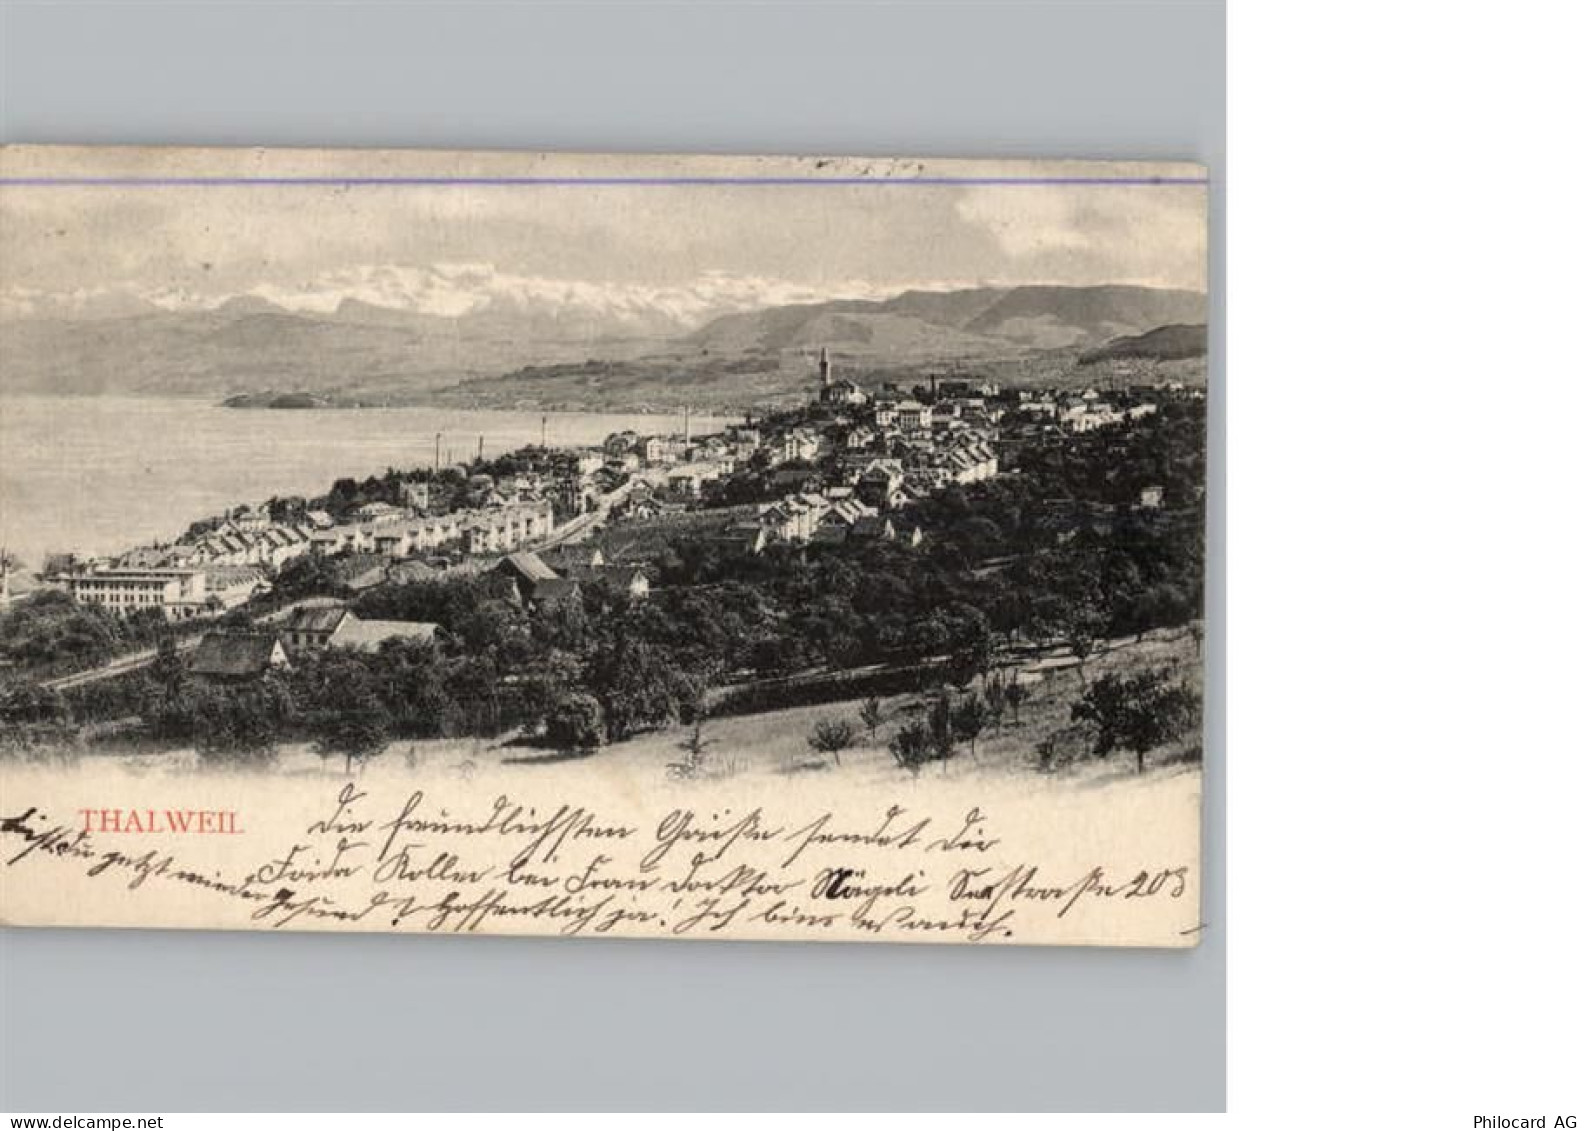 THALWEIL
Die freundlichsten Grüße sendet Dir
Frida Koller bei Frau Doktor Nägeli Seestraße 203
bist Du jetzt wieder
gesund? Hoffentlich ja! Ich bin es auch.
www.delcampe.net
Philocard AG